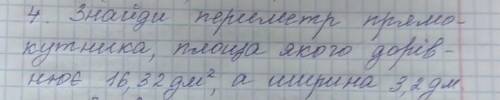 4. Знайди периметр прямо-
кутника, площа якого дорів-
нює 16,32 дм², а ширина 3,2 дм.